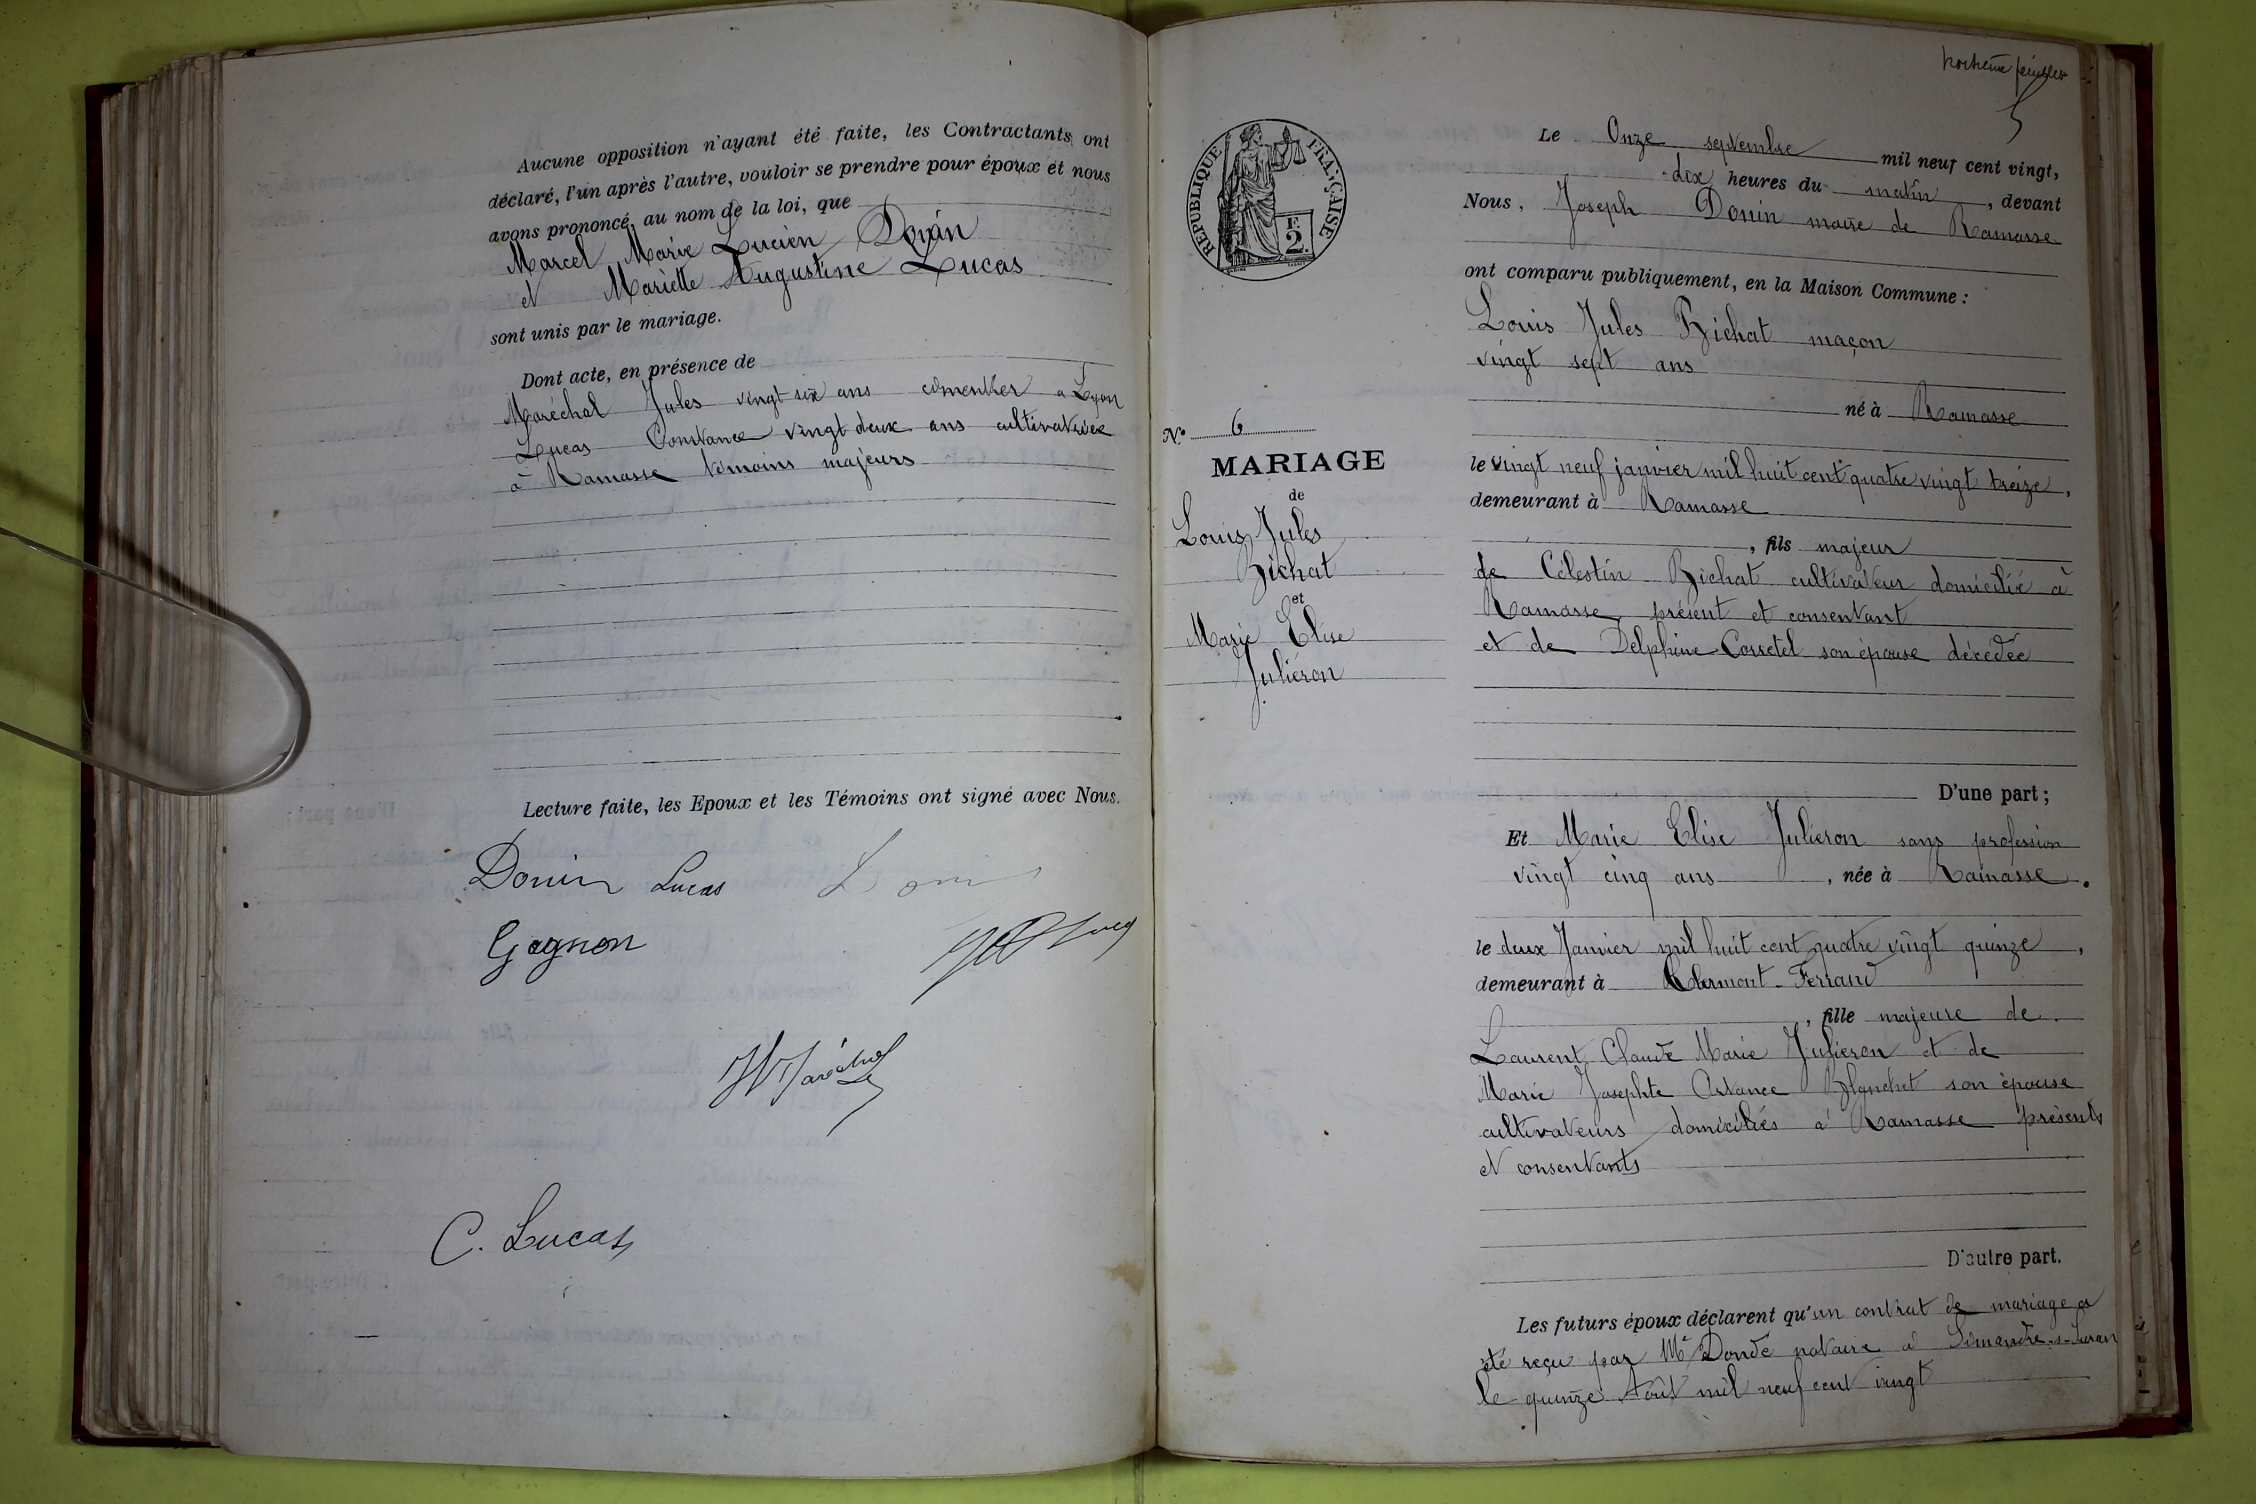 Aucune opposition n'ayant été faite, les Contractants ont
déclaré, l'un après l'autre, vouloir se prendre pour époux et nous
avons prononcé, au nom de la loi, que
Marcel Marie Lucien Donin
et Mariette Augustine Lucas
sont unis par le mariage.
Dont acte, en présence de
Maréchal Jules vingt six ans à Lyon
Lucas Constance vingt deux ans cultivatrice
à Ramasse témoins majeurs
Lecture faite, les Epoux et les Témoins ont signé avec Nous.
Donin Lucas
Gagnon
Maréchal
C. Lucas
feuillet
RÉPUBLIQUE FRANÇAISE
F.
2
N.° 6
MARIAGE
de
Louis Jules
Bichat
et
Marie Elise
Juliéron
Le Onze septembre mil neuf cent vingt,
dix heures du matin, devant
Nous, Joseph Donin maire de Ramasse
ont comparu publiquement, en la Maison Commune :
Louis Jules Bichat maçon
vingt sept ans
né à Ramasse
le vingt neuf janvier mil huit cent quatre vingt treize,
demeurant à Ramasse
, fils majeur
de Célestin Bichat cultivateur domicilié à
Ramasse, présent et consentant
et de Delphine Corretel son épouse décédée
D'une part ;
Et Marie Elise Julieron sans profession
vingt cinq ans, née à Ramasse.
le deux Janvier mil huit cent quatre vingt quinze,
demeurant à Clermont-Ferrand
, fille majeure de
Laurent Claude Marie Julieron et de
Marie Josephte Blanchet son épouse
cultivateurs domiciliés à Ramasse présents
et consentants
D'autre part.
Les futurs époux déclarent qu'un contrat de mariage a
été reçu par Me Donde notaire à Simandre-s-Suran
le quinze Août mil neuf cent vingt